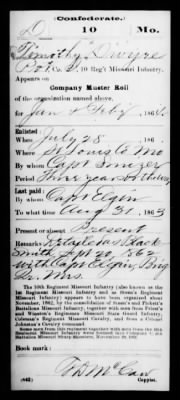 (Confederate.)
D 10 Mo.
Timothy Dwyre
Co. D, 10 Reg't Missouri Infantry.
Appears on
Company Muster Roll
of the organization named above,
for Jan & Feby, 1864.
Enlisted:
When July 28, 186
Where St Louis Co Mo
By whom Capt
Period three years or the war
Last paid:
By whom Capt Elgin
To what time Aug 31, 1863
Present or absent Present
Remarks: Detailed as Black
Smith Sept 20, 1862
with Capt Elgin, Brig
Qr. Mrs.
The 10th Regiment Missouri Infantry (also known as the
Regiment Missouri Infantry and as Steen's Regiment
Missouri Infantry) appears to have been organized about
November, 1862, by the consolidation of
Battalions Missouri Infantry, with men from
and Winston's Regiments Missouri State Guard Infantry,
Coleman's Regiment Missouri Cavalry, and from a Colonel
Johnston's Cavalry command.
Book mark:
(642)
Copyist.